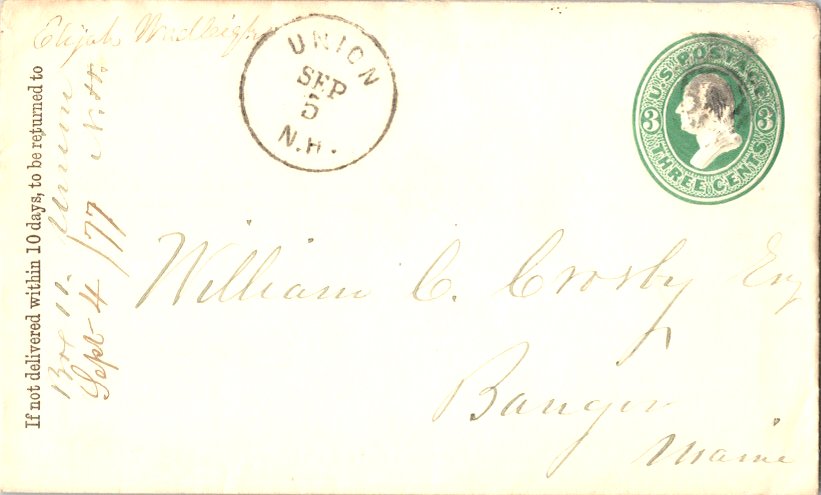 Elijah Wadleigh
UNION
SEP
5
N.H.
U.S. POSTAGE
3 3
THREE CENTS
If not delivered within 10 days, to be returned to
Union N.H.
Sept 4/77
William C. Crosby Esq
Bangor
Maine